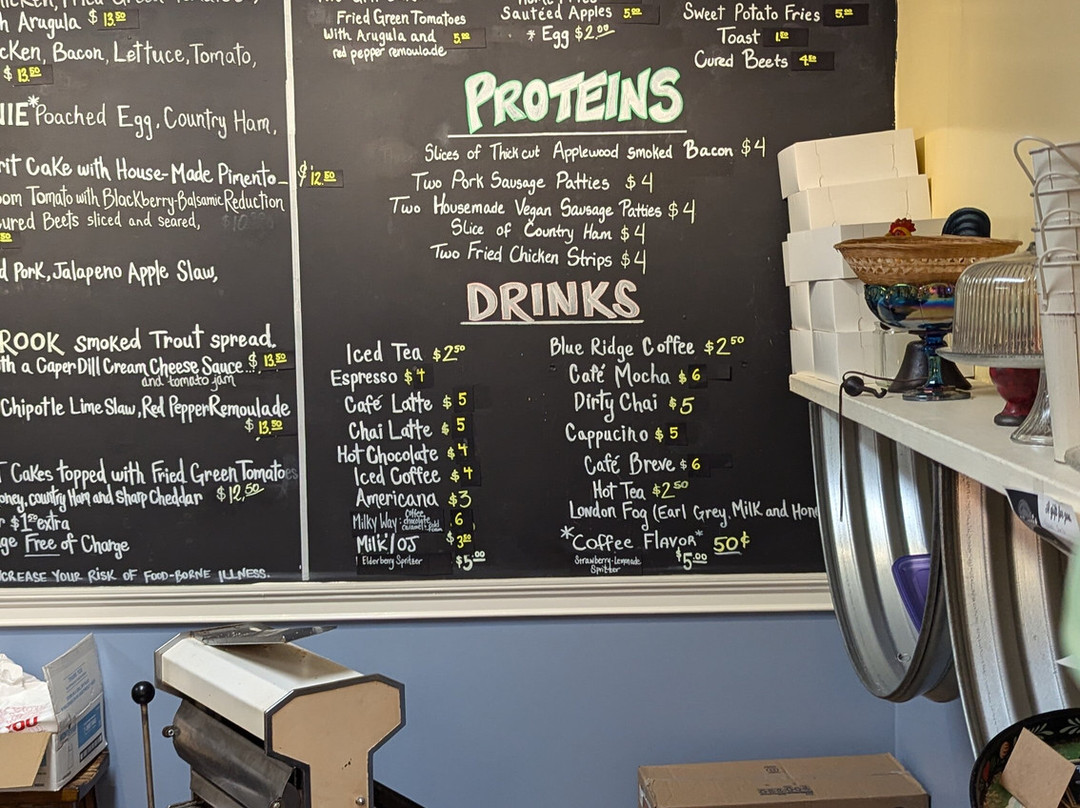 h Arugula $ 13.50
cken, Bacon, Lettuce, Tomato,
$ 13.50
NIE* Poached Egg, Country Ham,
rit Cake with House-Made Pimento- $12.50
om Tomato with Blackberry-Balsamic Reduction
ured Beets sliced and seared,
50
d Pork, Jalapeno Apple Slaw,
ROOK smoked Trout spread.
th a Caper Dill Cream Cheese Sauce $ 13.50
and tomato jam
Chipotle Lime Slaw, Red Pepper Remoulade
$ 13.50
T Cakes topped with Fried Green Tomatoes
oney, country Ham and sharp Cheddar $12.50
extra
ge Free of Charge
NCREASE YOUR RISK OF FOOD-BORNE ILLNESS.
Fried Green Tomatoes
With Arugula and 5.00
red pepper remoulade
Sautéed Apples 5.00
* Egg $2.00
Sweet Potato Fries 5.00
Toast
Cured Beets
PROTEINS
Slices of Thick cut Applewood smoked Bacon $4
Two Pork Sausage Patties $4
Two Housemade Vegan Sausage Patties $4
Slice of Country Ham $4
Two Fried Chicken Strips $4
DRINKS
Iced Tea $2.50
Espresso $4
Café Latte $5
Chai Latte $5
Hot Chocolate $4
Iced Coffee $4
Americana $3
Milky Way: Coffee chocolate caramel 6
Milk/OJ
Elderberry Spritzer $5.00
Blue Ridge Coffee $2.50
Café Mocha $6
Dirty Chai $5
Cappucino $5
Café Breve $6
Hot Tea $2.50
London Fog (Earl Grey, Milk and Hon
*Coffee Flavor* 50¢
Strawberry-Lemonade $5.00
Spritzer